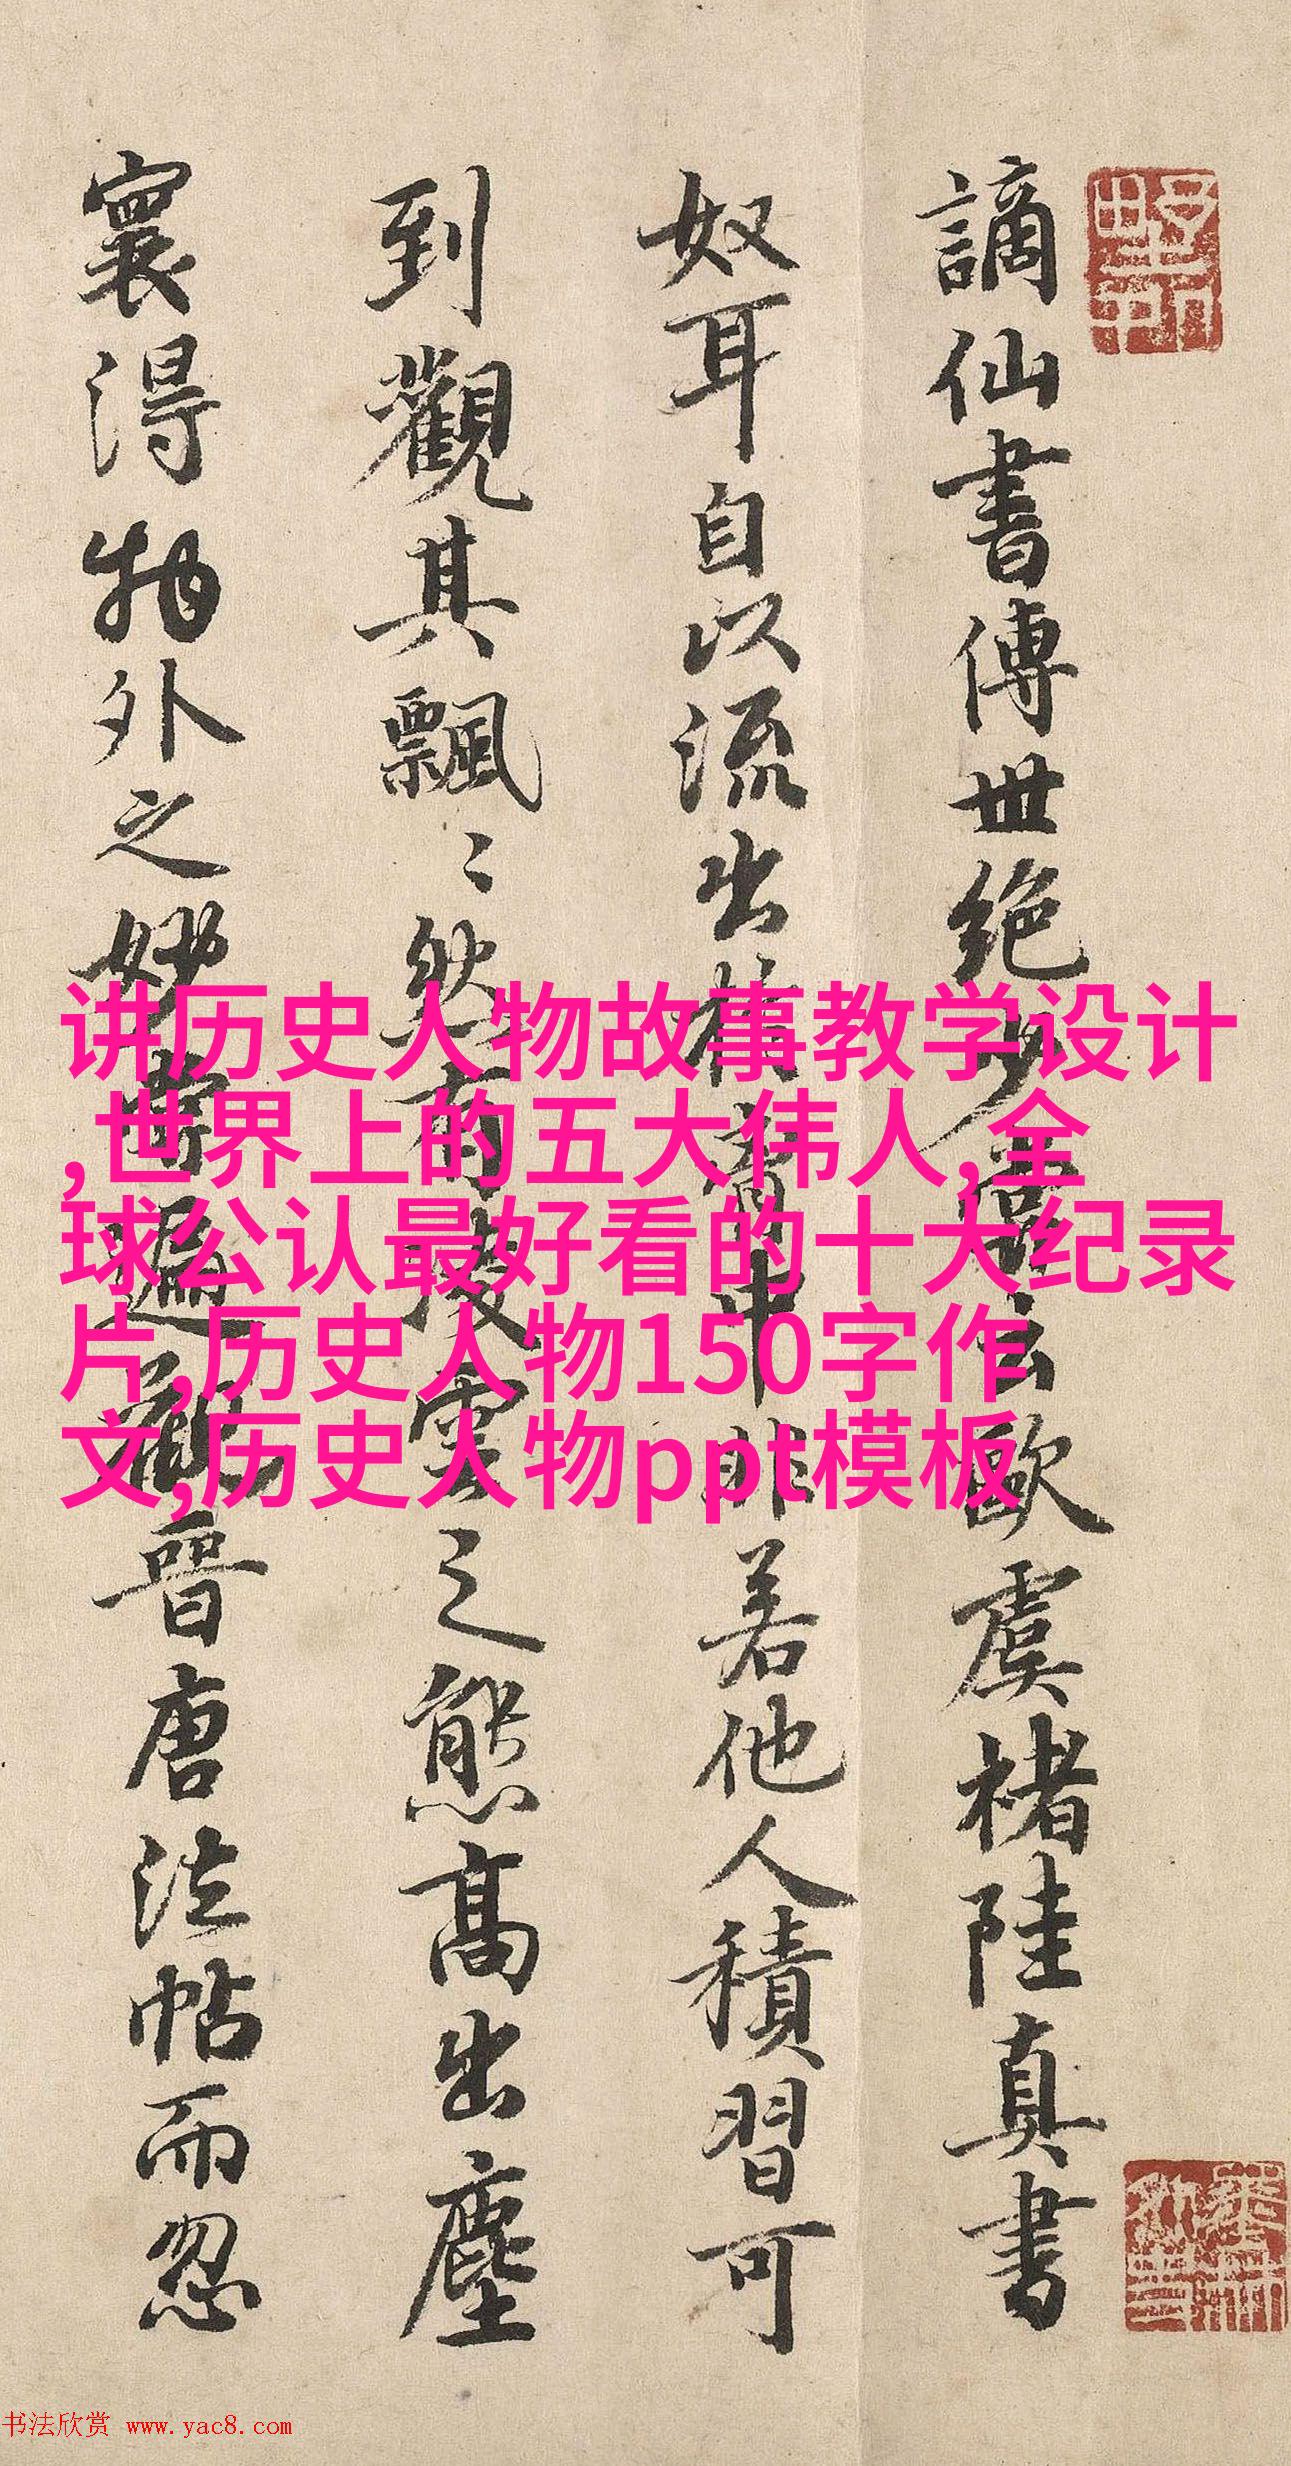 謫仙書傳世絶少嘗云歐虞褚陸真書
奴耳自以流出於胷中非若他人積習可
到觀其飄〻然有凌雲之態高出塵
寰得物外之妙嘗遍觀晉唐法帖而忽
讲历史人物故事教学设计
,世界上的五大伟人,全
球公认最好看的十大纪录
片,历史人物150字作
文,历史人物ppt模板
书法欣赏 www.yac8.com